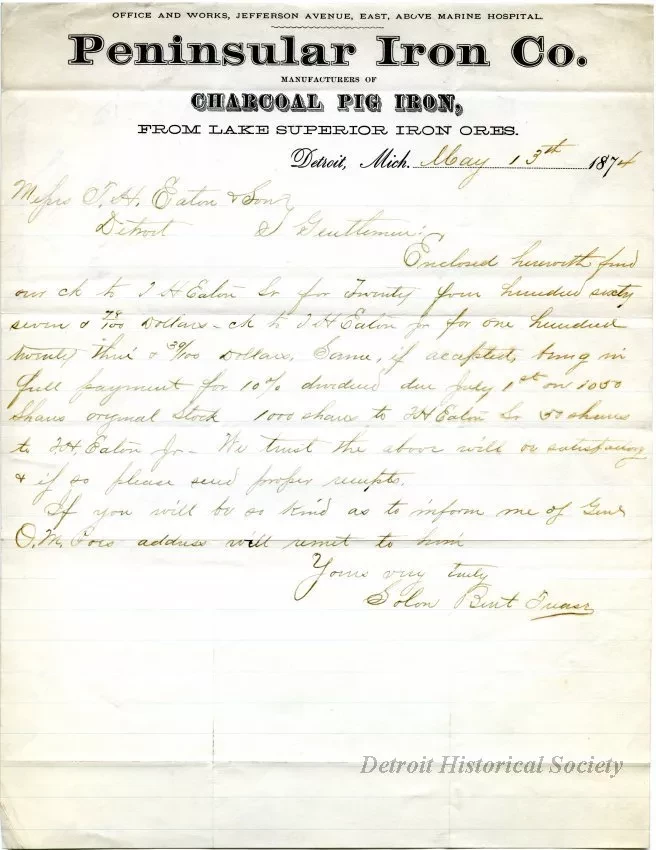 OFFICE AND WORKS, JEFFERSON AVENUE, EAST, ABOVE MARINE HOSPITAL.
Peninsular Iron Co.
MANUFACTURERS OF
CHARCOAL PIG IRON,
FROM LAKE SUPERIOR IRON ORES.
Detroit, Mich. May 13th 1874
Messrs T. H. Eaton & Son
Detroit Gentlemen:
Enclosed herewith find
our ck to T H Eaton Sr for Twenty four hundred sixty
seven & 78/100 Dollars - ck to T H Eaton Jr for one hundred
twenty three & 39/100 Dollars, Same, if accepted, being in
full payment for 10% dividend due July 1st on 1050
Shares original Stock 1000 shares to T H Eaton Sr 50 shares
to T H, Eaton Jr - We trust the above will be satisfactory
& if so please send proper receipts.
If you will be so kind as to inform me of Genl
O. M. Poes address will remit to him
Yours very truly
Solon Burt Treasr
Detroit Historical Society